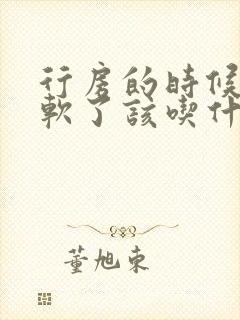 行房的時候
軟了該喫什
董旭東